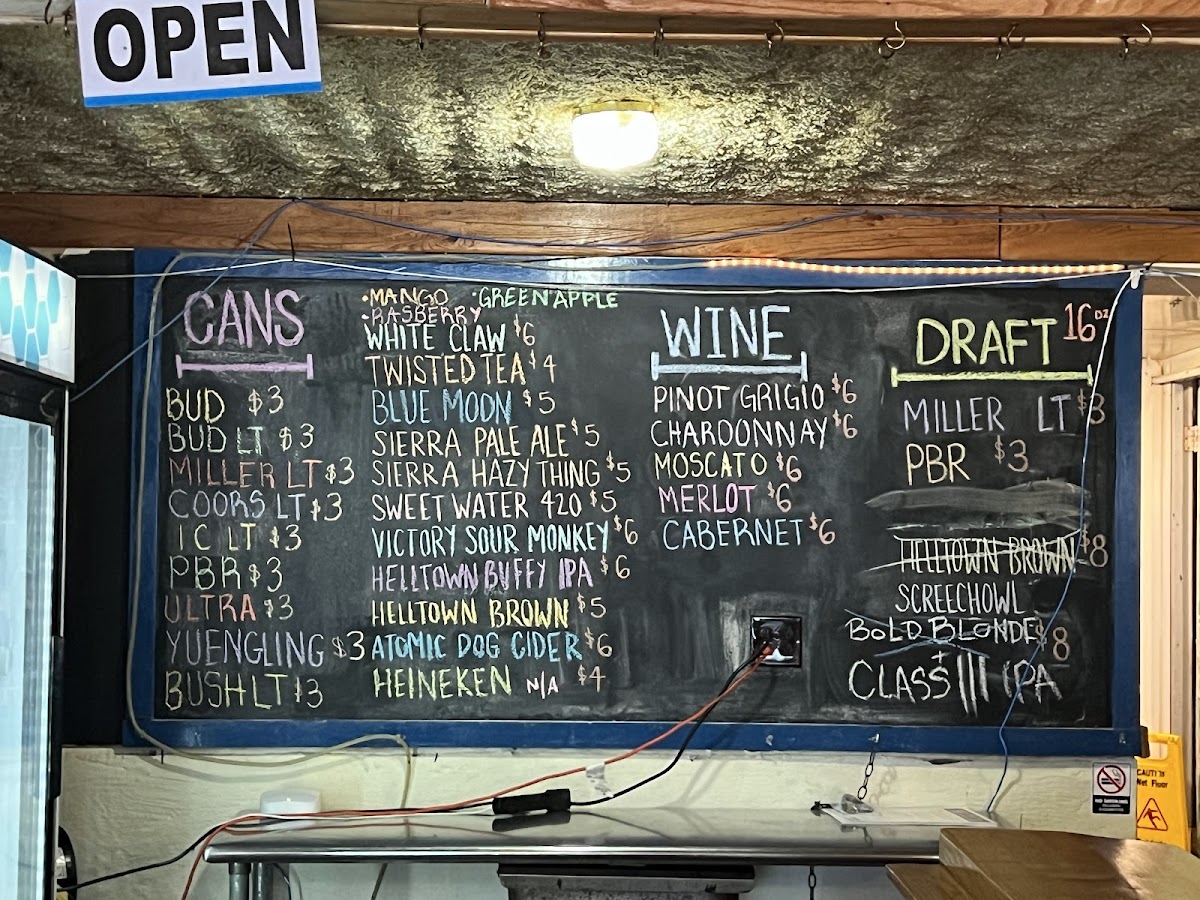 OPEN
CANS
BUD $3
BUD LT $3
MILLER LT $3
COORS LT $3
IC LT $3
PBR $3
ULTRA $3
YUENGLING $3
BUSH LT $3
•MANGO •GREEN APPLE
•RASBERRY
WHITE CLAW $6
TWISTED TEA $4
BLUE MOON $5
SIERRA PALE ALE $5
SIERRA HAZY THING $5
SWEET WATER 420 $5
VICTORY SOUR MONKEY $6
HELLTOWN BUFFY IPA $6
HELLTOWN BROWN $5
ATOMIC DOG CIDER $6
HEINEKEN N/A $4
WINE
PINOT GRIGIO $6
CHARDONNAY $6
MOSCATO $6
MERLOT $6
CABERNET $6
DRAFT 16 oz
MILLER LT $3
PBR $3
HELLTOWN BROWN $8
SCREECHOWL
BOLD BLONDE $8
+
CLASS III IPA
CAUTION
Wet Floor
NO SMOKING